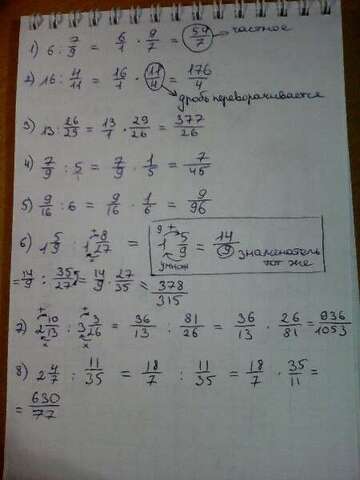 1) 6 : 7/9 = 6/1 · 9/7 = 54/7 частное
2) 16 : 4/11 = 16/1 · 11/4 = 176/4
дробь переворачивается
3) 13 : 26/29 = 13/1 · 29/26 = 377/26
4) 7/9 : 5 = 7/9 · 1/5 = 7/45
5) 9/16 : 6 = 9/16 · 1/6 = 9/96
6) 1 5/9 : 1 8/27 = 1 5/9 = 14/9 знаменатель
умнож тот же
= 14/9 : 35/27 = 14/9 · 27/35 = 378/315
7) 2 10/13 : 3 3/26 = 36/13 : 81/26 = 36/13 · 26/81 = 936/1053
8) 2 4/7 : 11/35 = 18/7 : 11/35 = 18/7 · 35/11 =
= 630/77